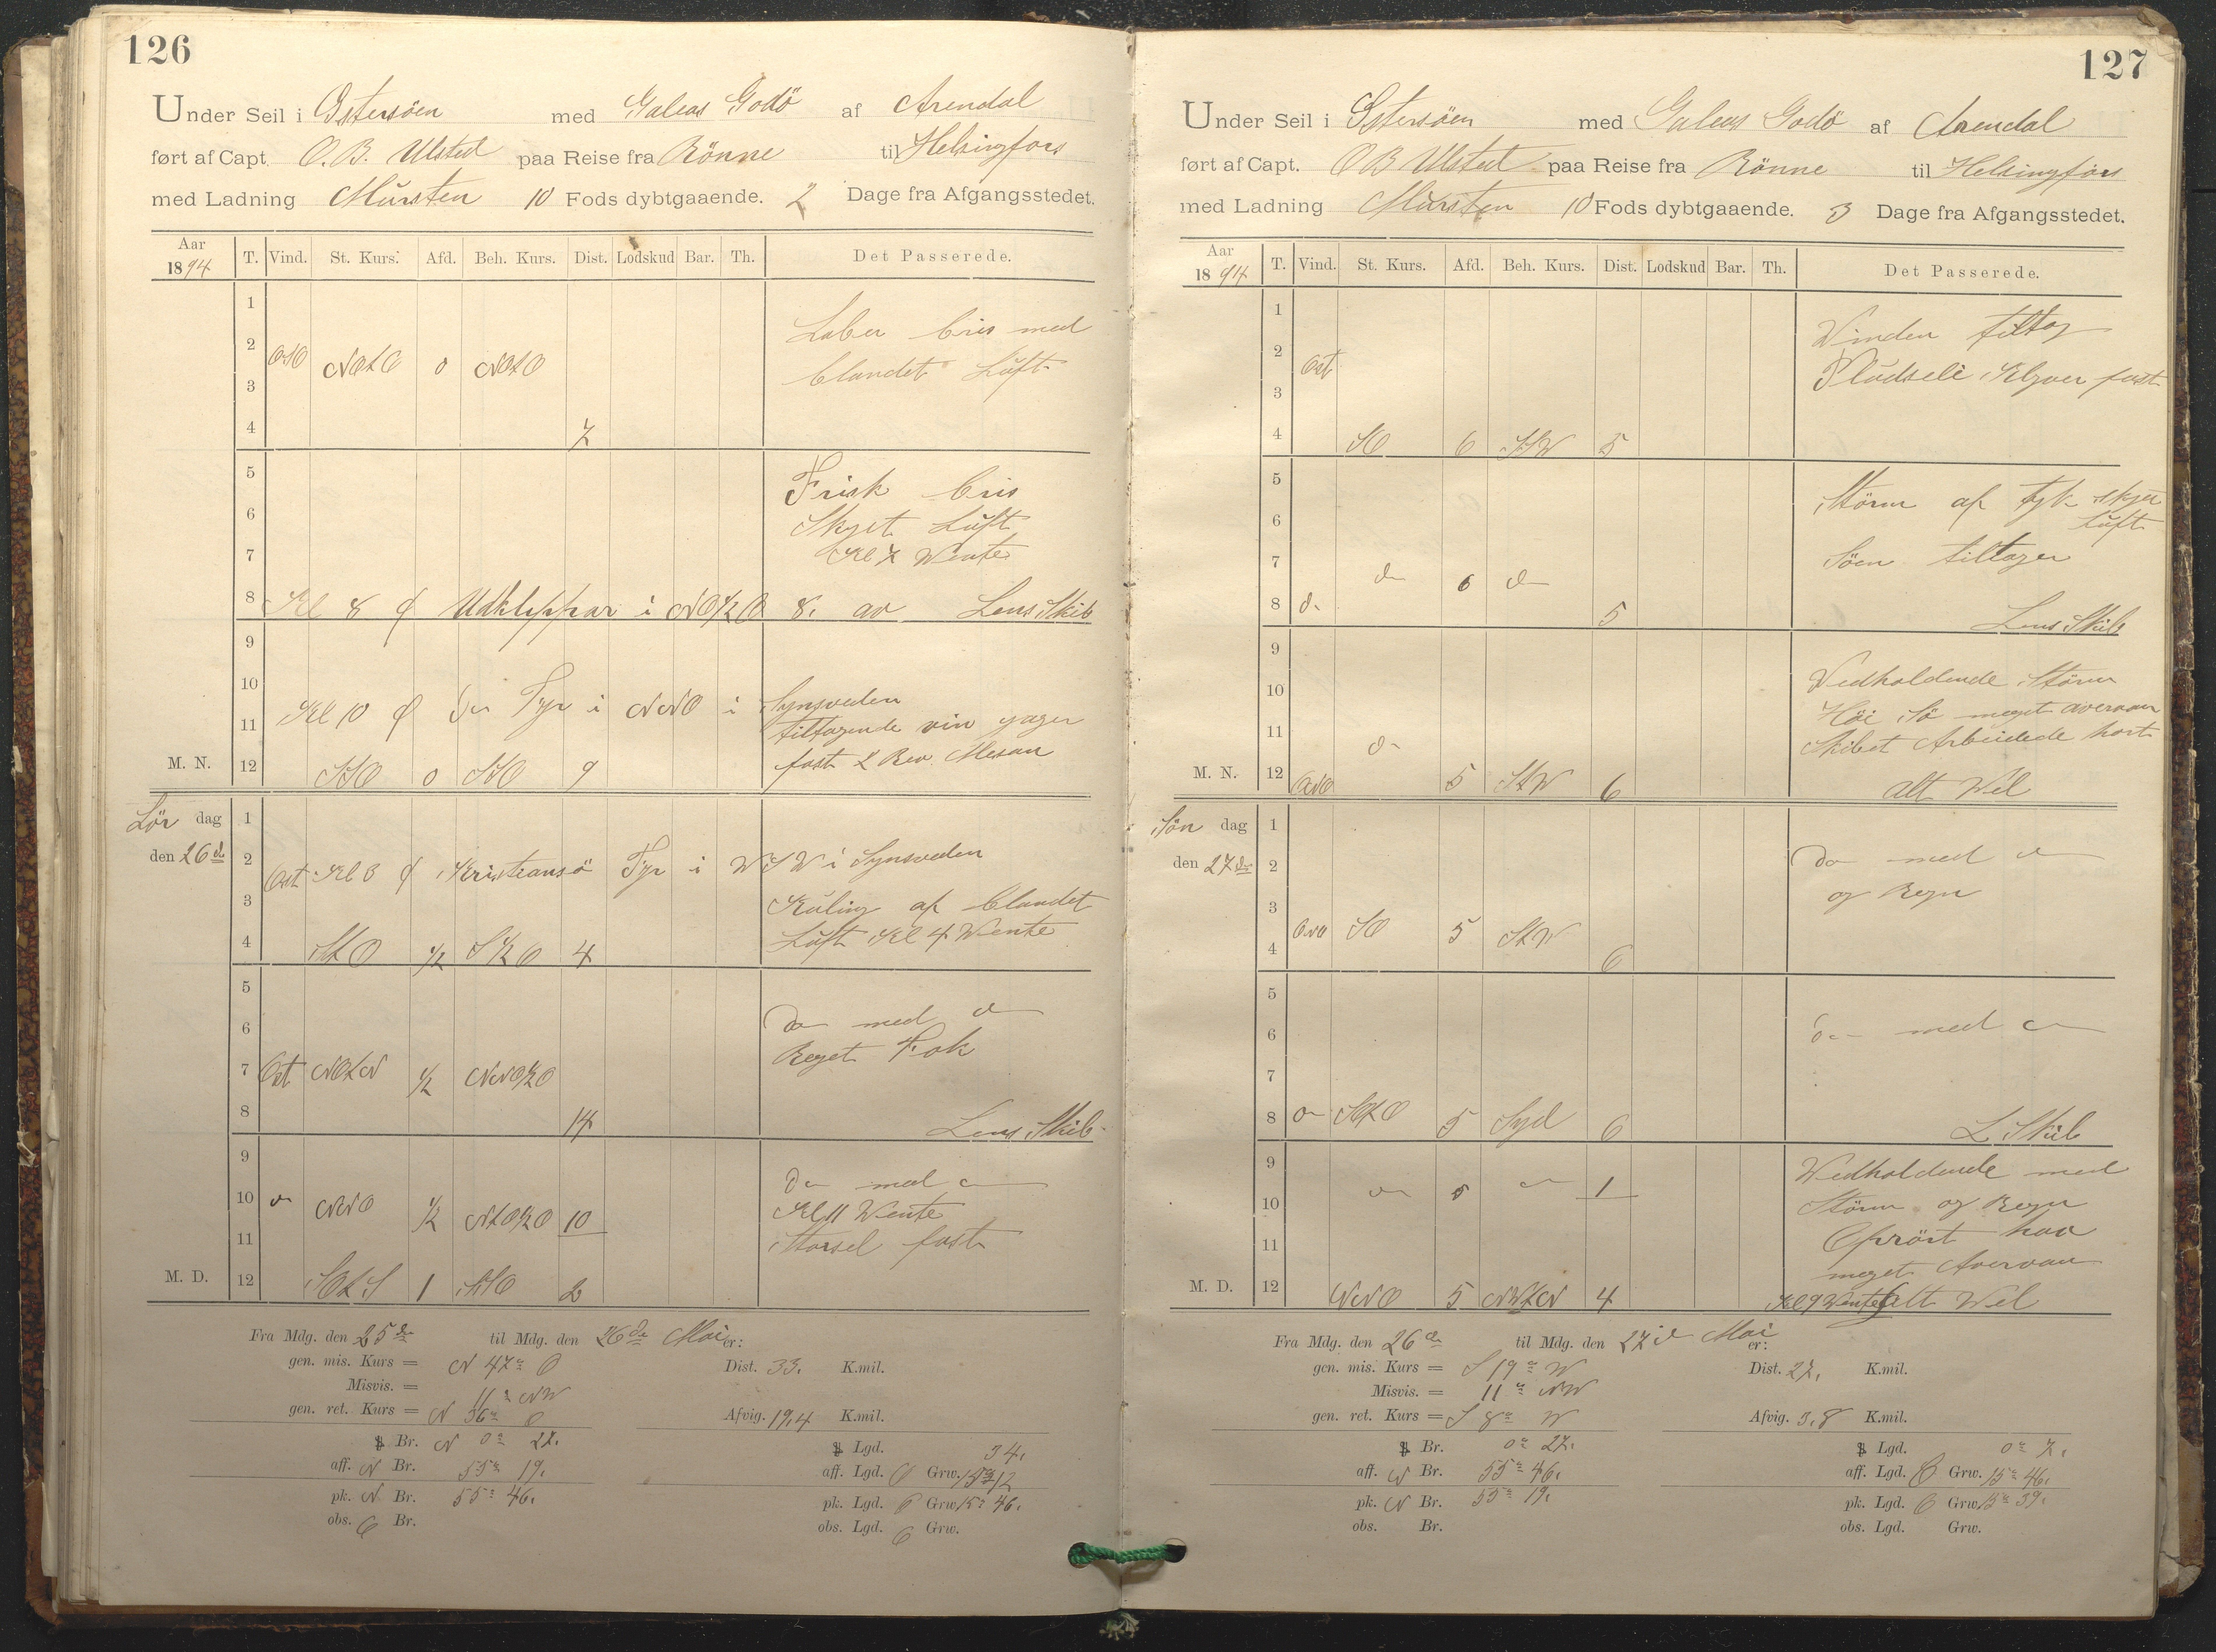 126
Under Seil i Østersöen med Galeas Godö af Arendal
ført af Capt. O. B. Ulsted paa Reise fra Rönne til Helsingfors
med Ladning Mursten 10 Fods dybtgaaende. 2 Dage fra Afgangsstedet.
Aar 1894 T. Vind. St. Kurs. Afd. Beh. Kurs. Dist. Lodskud Bar. Th. Det Passerede.
1
2 Laber bris med
OSO NOtO 0 NOtO blandet Luft
3
4 7
5 Frisk bris
6 Skyet Luft
7 Kl 7 Wente
8 Kl 8 Udklippar i NO½O 8. av Lens Skib
9
10 Synsveden
11 Kl 10 Fyr i NNO i tiltagende vin
M. N. 12 SSO 0 SSO 9 fast 2 Rev. Mesan
Lör dag 1
den 26de 2 Ost Kl 3 Kristiansö Fyr i WSW i Synsveden
3 Kuling af blandet
4 StO ½ S½O 4 Luft Kl 4 Wente
5
6 Do med do
7 Ost NOtN ½ NNO½O Reget Fok
8 14 Lens Skib
9 Do med do
10 do NNO ½ NtO½O 10 Kl 11 Wente
11 Storsel fast
M. D. 12 SOtS 1 SSO 2
Fra Mdg. den 25de til Mdg. den 26de Mai er:
gen. mis. Kurs = N 47° O Dist. 33. K.mil.
Misvis. = 11° NW
gen. ret. Kurs = N 36° O Afvig. 19,4 K.mil.
Br. N 0° 27. Lgd. 34.
aff. N Br. 55° 19. aff. Lgd. O Grw. 15° 12
pk. N Br. 55° 46. pk. Lgd. O Grw. 15° 46.
obs. Br. obs. Lgd. Grw.
127
Under Seil i Østersöen med Galeas Godö af Arendal
ført af Capt. O B Ulsted paa Reise fra Rönne til Helsingfors
med Ladning Mursten 10 Fods dybtgaaende. 3 Dage fra Afgangsstedet.
Aar 1894 T. Vind. St. Kurs. Afd. Beh. Kurs. Dist. Lodskud Bar. Th. Det Passerede.
1 Winden tiltog
2 Ost Plüdseli Klyver fast
3
4 SO 6 SSW 5
5 Störm af tyk skyet
6 Luft
7 do 6 do Söen tiltager
8 do 5 Lens Skib
9 Vedholdende Störm
10 Höi Sö meget avervan
11 do Skibet Arbeidede hart
M. N. 12 ONO 5 StW 6 Alt Wel
Sön dag 1
den 27de 2 Do med do
3 og Regn
4 ONO SO 5 StW 6
5
6 do med do
7
8 do SOtO 5 Syd 6 L Skib
9 Wedholdende med
10 do 5 do 1 Störm og Regn
11 Oprört hav
meget Avervan
M. D. 12 NNO 5 NWtN 4 Kl 9 Wente Alt Wel
Fra Mdg. den 26de til Mdg. den 27de Mai er:
gen. mis. Kurs = S 19° W Dist. 27. K.mil.
Misvis. = 11° NW
gen. ret. Kurs = S 8° W Afvig. 3,8 K.mil.
Br. 0° 27. Lgd. 0° 7.
aff. N Br. 55° 46. aff. Lgd. O Grw. 15° 46.
pk. N Br. 55° 19. pk. Lgd. O Grw. 15° 39.
obs. Br. obs. Lgd. Grw.